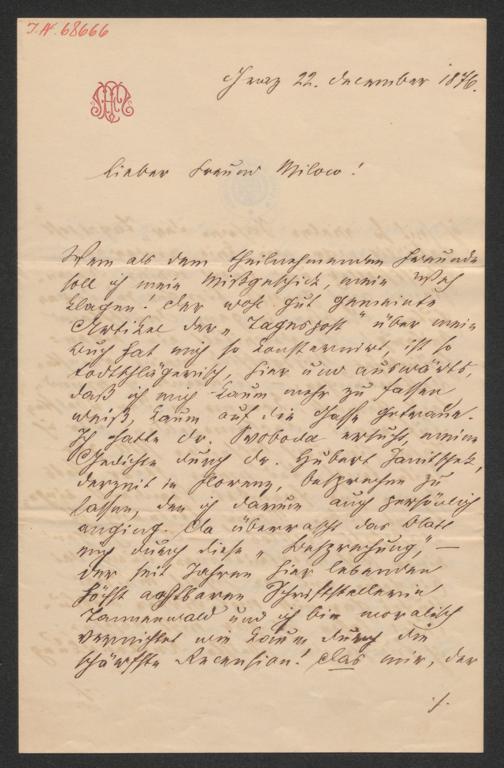 J.N. 68666
Graz 22. December 1876.
Lieber Freund Milow!
Wem als dem theilnehmenden Freunde
soll ich mein Mißgeschick, mein Weh
klagen! Der wohl gut gemeinte
Artikel der „Tagespost" über mein
Buch hat mich so konsternirt, ist so
todtschlägerisch, hier und auswärts,
daß ich mich kaum mehr zu fassen
weiß, kaum auf die Gasse getraue.
Ich hatte Dr. Svoboda ersucht, meine
Gedichte durch Dr. Hubert Janitschek,
derzeit in Florenz, besprechen zu
lassen, den ich darum auch persönlich
anging. Da überrascht das Blatt
mich durch diese „Besprechung", —
der seit Jahren hier lebenden
höchst achtbaren Schriftstellerin
Tannenwald und ich bin moralisch
vernichtet wie kaum durch die
schärfste Recension! Das mir, der
./.